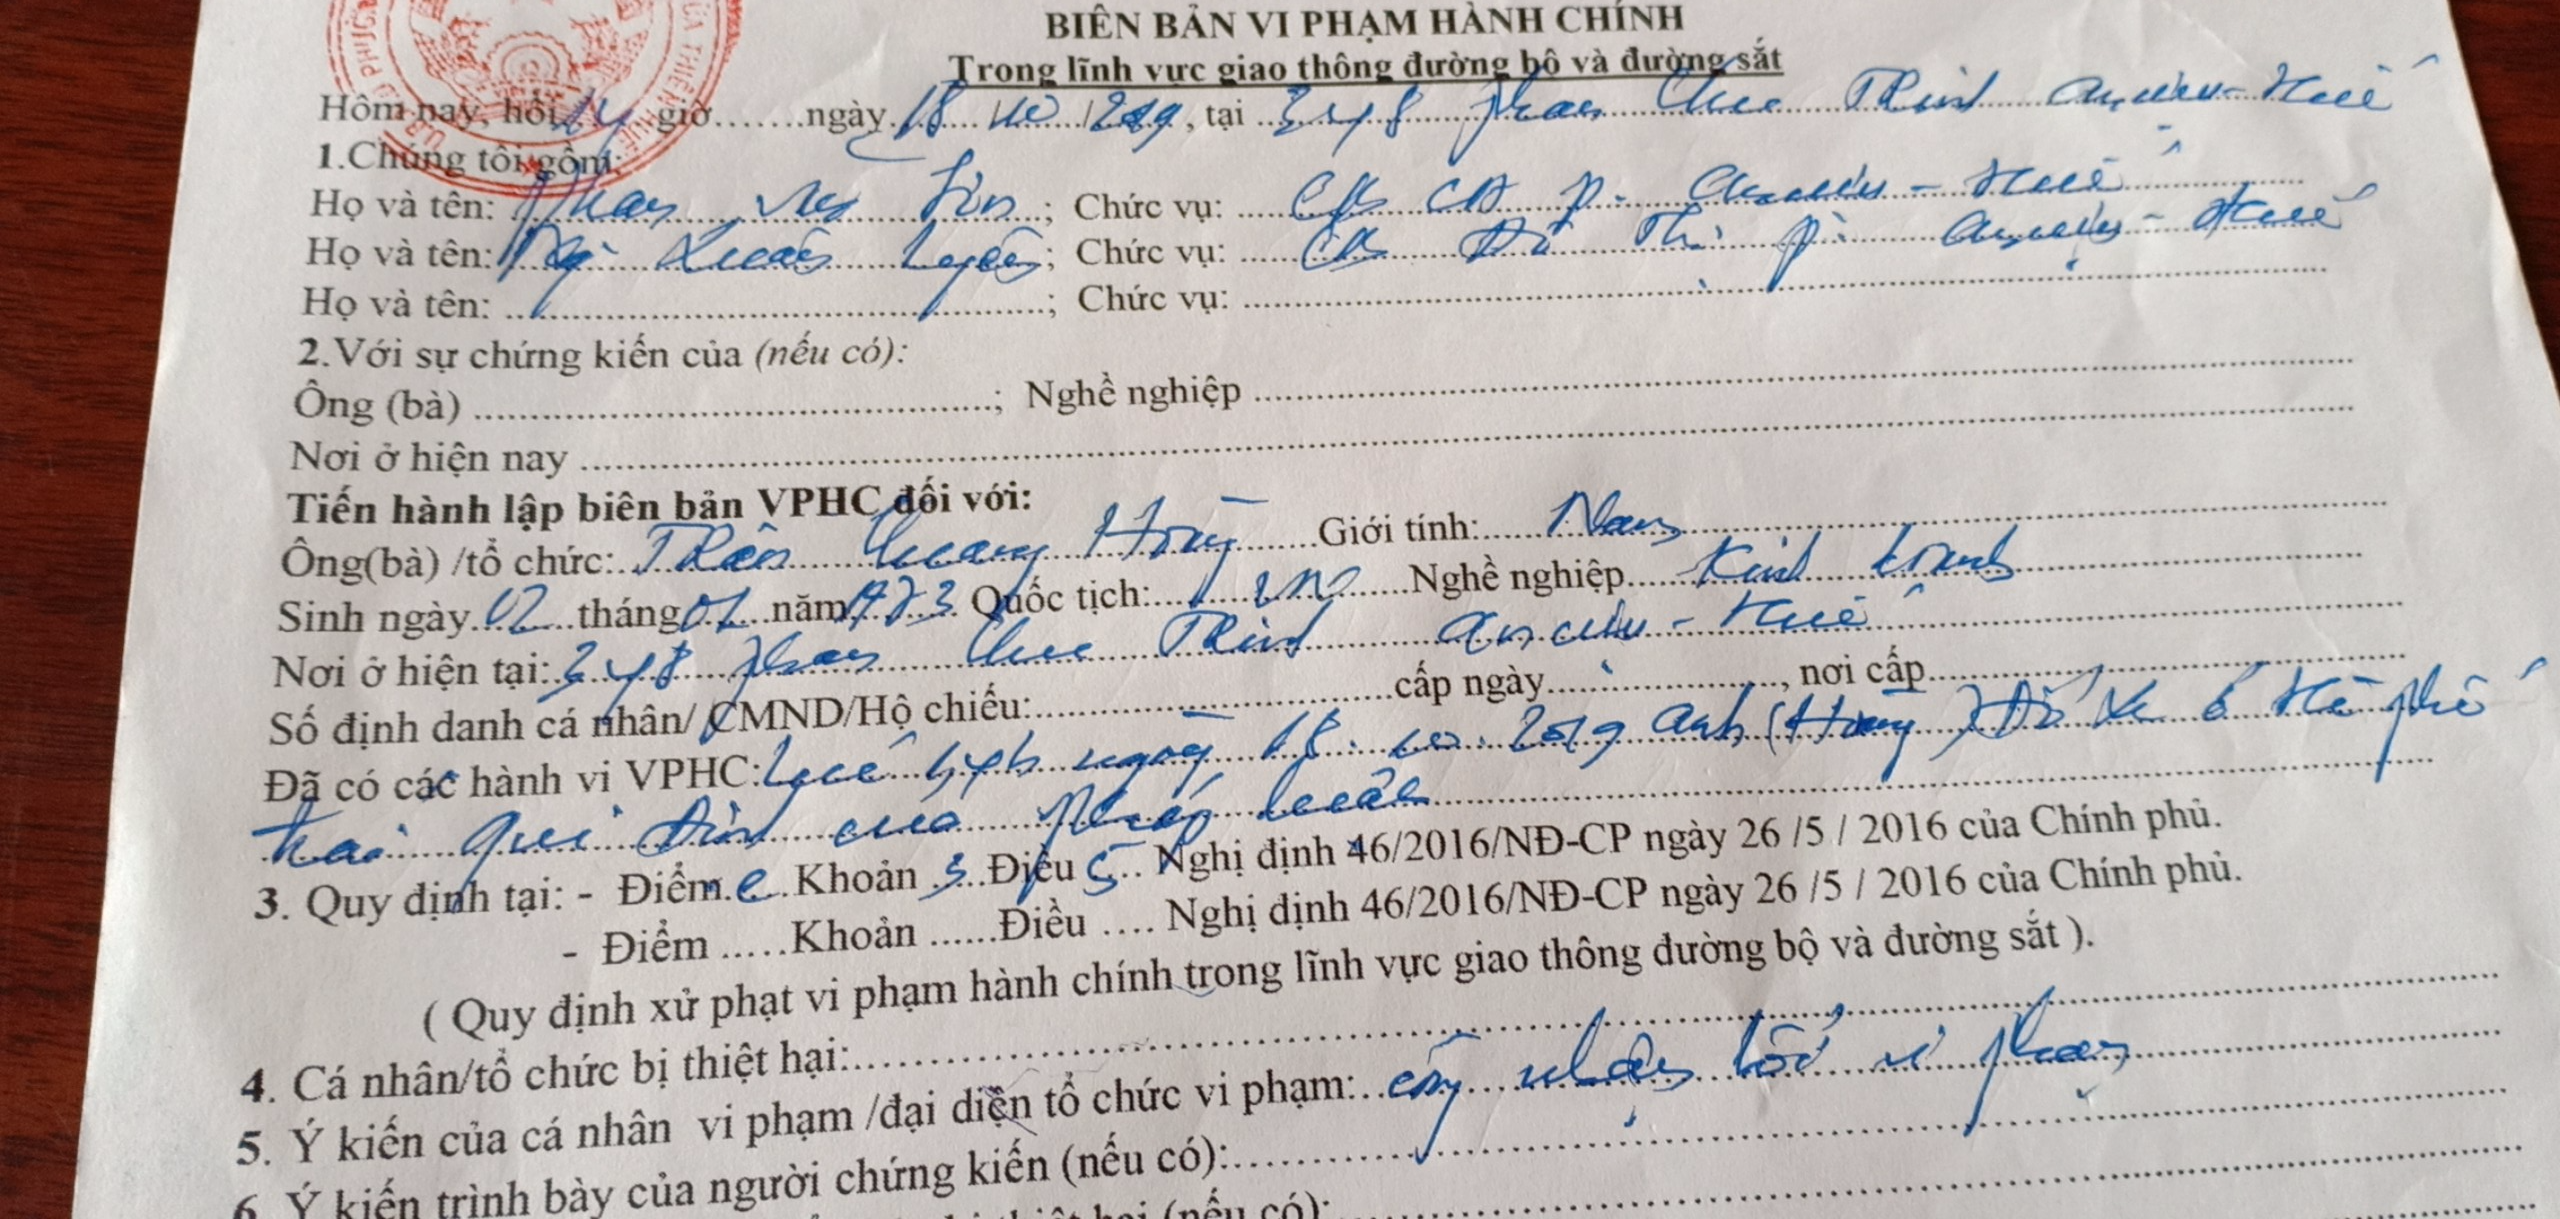 BIÊN BẢN VI PHẠM HÀNH CHÍNH
Trong lĩnh vực giao thông đường bộ và đường sắt
Hôm nay, hồi 14 giờ.......ngày 18/10/2019, tại 348 Phan Chu Trinh An Cựu - Huế
1.Chúng tôi gồm:
Họ và tên: Phan Tín; Chức vụ: CA P. An Cựu - Huế
Họ và tên: Ngô Xuân; Chức vụ: Đô Thị P. An Cựu - Huế
Họ và tên: ; Chức vụ:
2.Với sự chứng kiến của (nếu có):
Ông (bà) ; Nghề nghiệp
Nơi ở hiện nay
Tiến hành lập biên bản VPHC đối với:
Ông(bà) /tổ chức: Trần Quang Hùng Giới tính: Nam
Sinh ngày 02 tháng 01 năm 1973 Quốc tịch: VN Nghề nghiệp Kinh doanh
Nơi ở hiện tại: 348 Phan Chu Trinh An Cựu - Huế
Số định danh cá nhân/ CMND/Hộ chiếu: cấp ngày , nơi cấp
Đã có các hành vi VPHC: Lúc ngày 18.10.2019 anh (Hùng) để xe ô hè phố
trái qui định của pháp luật
3. Quy định tại: - Điểm e Khoản 3 Điều 5 Nghị định 46/2016/NĐ-CP ngày 26 /5 / 2016 của Chính phủ.
- Điểm .....Khoản ......Điều .... Nghị định 46/2016/NĐ-CP ngày 26 /5 / 2016 của Chính phủ.
( Quy định xử phạt vi phạm hành chính trong lĩnh vực giao thông đường bộ và đường sắt ).
4. Cá nhân/tổ chức bị thiệt hại:
5. Ý kiến của cá nhân vi phạm /đại diện tổ chức vi phạm: công nhận lỗi vi phạm
6. Ý kiến trình bày của người chứng kiến (nếu có):
(nếu có):